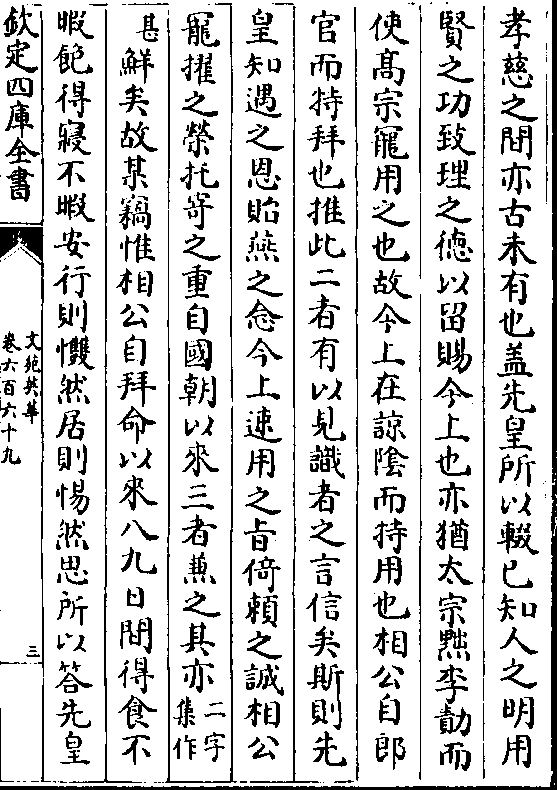 孝慈之間亦古未有也盖先皇所以輟已知人之明用
賢之功致理之德以留賜今上也亦猶太宗黜李勣而
使髙宗寵用之也故今上在諒陰而特用也相公自郎
官而特拜也推此二者有以見識者之言信矣斯則先
皇知遇之恩貽燕之念今上速用之旨倚賴之誠相公
寵擢之榮托寄之重自國朝以來三者兼之其亦二字集作
甚鮮矣故某竊惟相公自拜命以來八九日間得食不
暇飽得寢不暇安行則戄然居則惕然思所以答先皇
欽定四庫全書
文苑英華
卷六百六十九
三